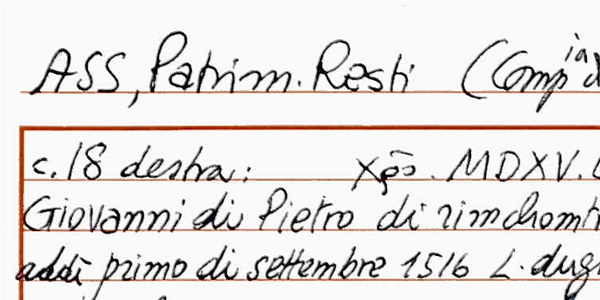 ASS, Patrim. Resti (Comp ia
c. 18 destra: Xp̄o. MDXV.
Giovanni di Pietro di rimchomtr
addì primo di settembre 1516 L. dug